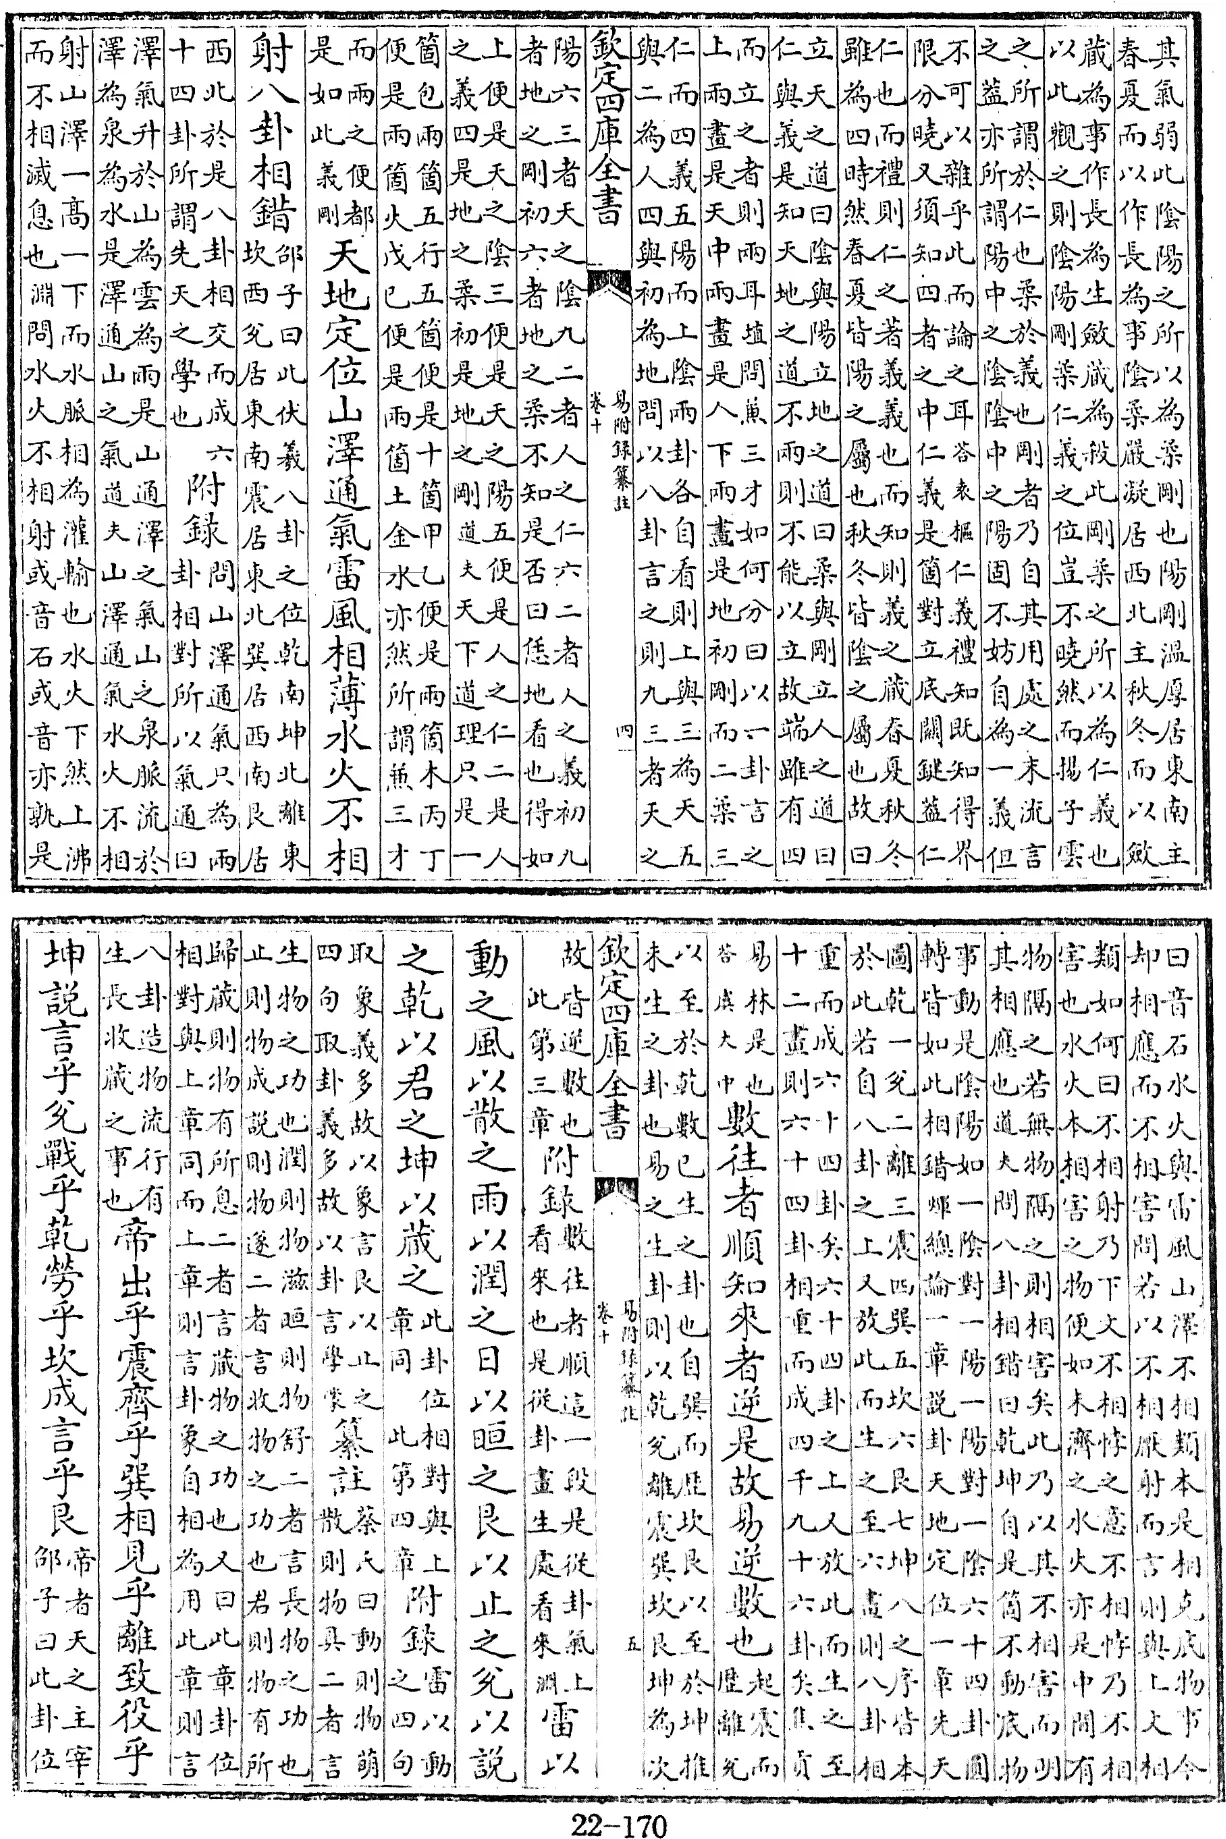 其氣弱此陰陽之所以為柔剛也陽剛溫厚居東南主
春夏而以作長為事陰柔嚴凝居西北主秋冬而以斂
藏為事作長為生斂藏為殺此剛柔之所以為仁義也
以此觀之則陰陽剛柔仁義之位豈不曉然而揚子雲
之所謂於仁也柔於義也剛者乃自其用處之末流言
之蓋亦所謂陽中之陰陰中之陽固不妨自為一義但
不可以雜乎此而論之耳答袁樞仁義禮知既知得界
限分曉又須知四者之中仁義是箇對立底關鍵蓋仁
仁也而禮則仁之著義義也而知則義之藏春夏秋冬
雖為四時然春夏皆陽之屬也秋冬皆陰之屬也故曰
立天之道曰陰與陽立地之道曰柔與剛立人之道曰
仁與義是知天地之道不兩則不能以立故端雖有四
而立之者則兩耳埴問兼三才如何分曰以一卦言之
上兩畫是天中兩畫是人下兩畫是地初剛而二柔三
仁而四義五陽而上陰兩卦各自看則上與三為天五
與二為人四與初為地問以八卦言之則九三者天之
欽定四庫全書
易附錄纂註
卷十
四
陽六三者天之陰九二者人之仁六二者人之義初九
者地之剛初六者地之柔不知是否曰恁地看也得如
上便是天之陰三便是天之陽五便是人之仁二是人
之義四是地之柔初是地之剛道夫天下道理只是一
箇包兩箇五行五箇便是十箇甲乙便是兩箇木丙丁
便是兩箇火戊已便是兩箇土金水亦然所謂兼三才
而兩之便都
是如此義剛
天地定位山澤通氣雷風相薄水火不相
射八卦相錯
邵子曰此伏羲八卦之位乾南坤北離東
坎西兌居東南震居東北巽居西南艮居
西北於是八卦相交而成六
十四卦所謂先天之學也
附錄
問山澤通氣只為兩
卦相對所以氣通曰
澤氣升於山為雲為雨是山通澤之氣山之泉脈流於
澤為泉為水是澤通山之氣道夫山澤通氣水火不相
射山澤一高一下而水脈相為灌輸也水火下然上沸
而不相滅息也淵問水火不相射或音石或音亦孰是
曰音石水火與雷風山澤不相類本是相克底物事今
却相應而不相害問若以不相厭射而言則與上文相
類如何曰不相射乃下文不相悖之意不相悖乃不相
害也水火本相害之物便如未濟之水火亦是中間有
物隔之若無物隔之則相害矣此乃以其不相害而明
其相應也道夫問八卦相錯曰乾坤自是箇不動底物
事動是陰陽如一陰對一陽一陽對一陰六十四卦圓
轉皆如此相錯煇總論一章說卦天地定位一章先天
圖乾一兌二離三震四巽五坎六艮七坤八之序皆本
於此若自八卦之上又放此而生之至六畫則八卦相
重而成六十四卦矣六十四卦之上又放此而生之至
十二畫則六十四卦相重而成四千九十六卦矣焦貢
易林是也
答虞大中
數往者順知來者逆是故易逆數也
起震而
歷離兌
以至於乾數已生之卦也自巽而歷坎艮以至於坤推
未生之卦也易之生卦則以乾兌離震巽坎艮坤為次
欽定四庫全書
易附錄纂註
卷十
五
故皆逆數也
此第三章
附錄
數往者順這一段是從卦氣上
看來也是從卦畫生處看來淵
雷以
動之風以散之雨以潤之日以晅之艮以止之兌以說
之乾以君之坤以藏之
此卦位相對與上
章同 此第四章
附錄
雷以動
之四句
取象義多故以象言艮以止之
四句取卦義多故以卦言學蒙
纂註
蔡氏曰動則物萌
散則物具二者言
生物之功也潤則物滋晅則物舒二者言長物之功也
止則物成說則物遂二者言收物之功也君則物有所
歸藏則物有所息二者言藏物之功也又曰此章卦位
相對與上章同而上章則言卦象自相為用此章則言
八卦造物流行有
生長收藏之事也
帝出乎震齊乎巽相見乎離致役乎
坤說言乎兌戰乎乾勞乎坎成言乎艮
帝者天之主宰
邵子曰此卦位
22-170